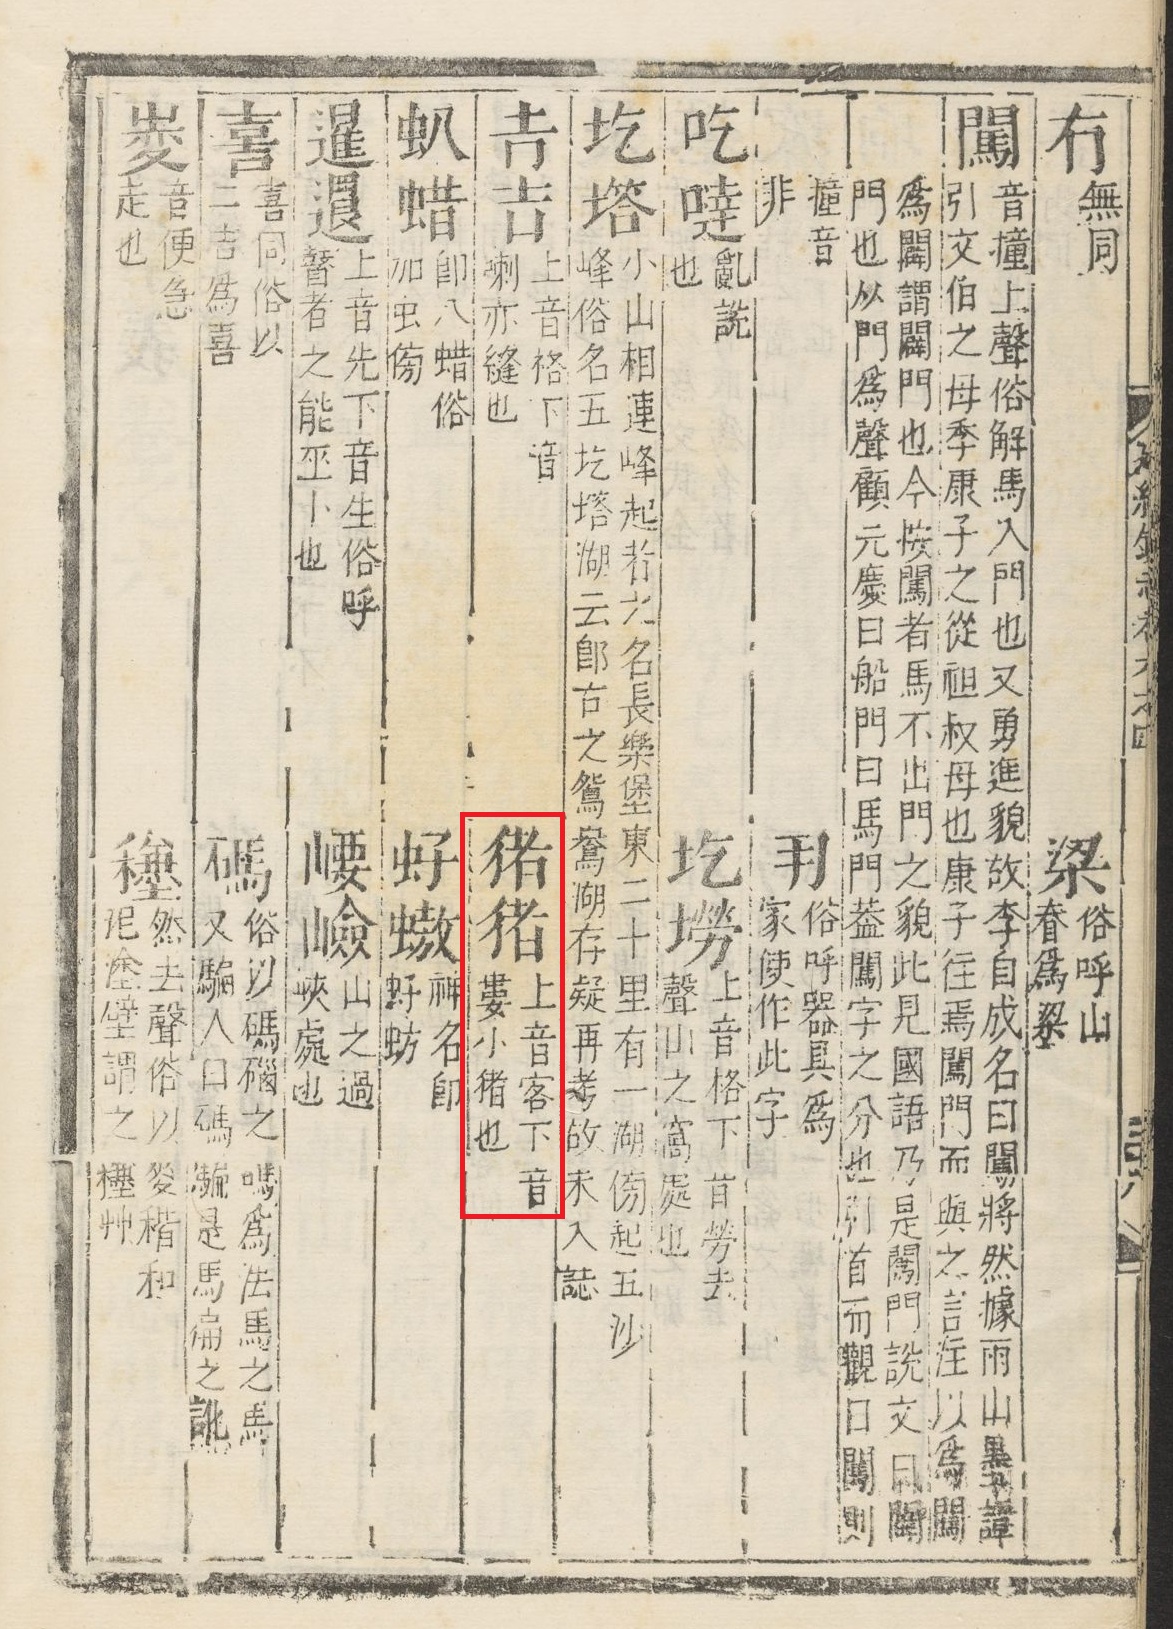 冇
無同
梁
俗呼山
脊為梁
闖
音撞上聲俗解馬入門也又勇進貌故李自成名曰闖將然據雨山墨譚
引文伯之母季康子之從祖叔母也康子往焉闖門而與之言注以為闢
為闢謂闢門也今按闖者馬不出門之貌此見國語乃是闖門說文曰闢
門也从門為聲顧元慶曰船門曰馬門蓋闖字之分也引首而觀曰闖則
撞音
非
刊
俗呼器具為
家使作此字
吃噠
亂說
也
圪塄
上音格下音勞去
聲山之窩處也
圪塔
小山相連峰起者之名長樂堡東二十里有一湖傍起五沙
峰俗名五圪塔湖云即古之鴛鴦湖存疑再考故未入誌
上音格下音
喇亦縫也
上音客下音
婁小豬也
虯蜡
即八蜡俗
加虫傍
神名即
上音先下音生俗呼
瞽者之能巫卜也
崾嶮
山之過
峽處也
喜
喜同俗以
二吉為喜
碼
俗以碼碯之
碼為法馬之馬
又騙人曰碼
音便急
走也
然去聲俗以
泥塗壁謂之